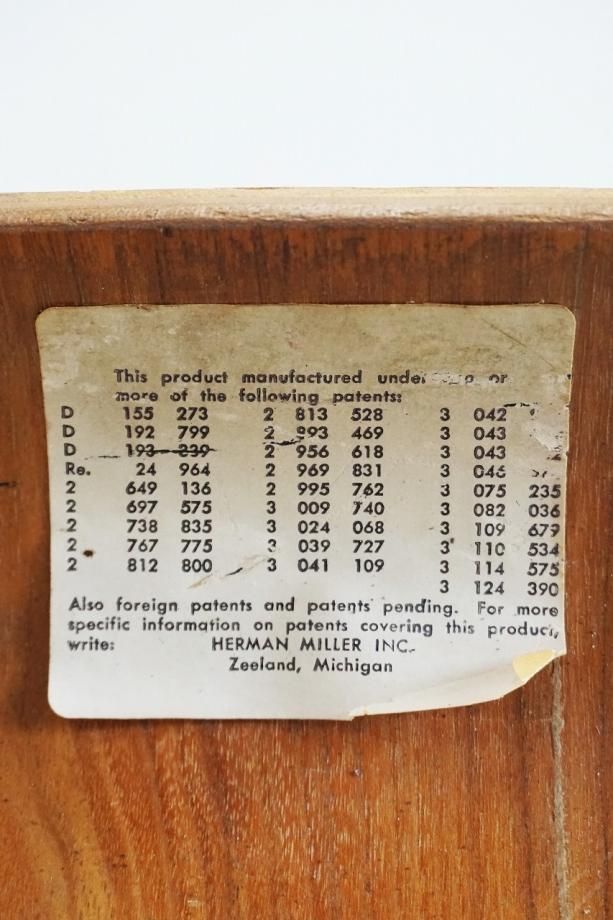 This product manufactured under or
more of the following patents:
D 155 273 2 813 528 3 042
D 192 799 2 893 469 3 043
D 193 239 2 956 618 3 043
Re. 24 964 2 969 831 3 046
2 649 136 2 995 762 3 075 235
2 697 575 3 009 740 3 082 036
2 738 835 3 024 068 3 109 679
2 767 775 3 039 727 3 110 534
2 812 800 3 041 109 3 114 575
3 124 390
Also foreign patents and patents pending. For more
specific information on patents covering this product,
write: HERMAN MILLER INC.
Zeeland, Michigan